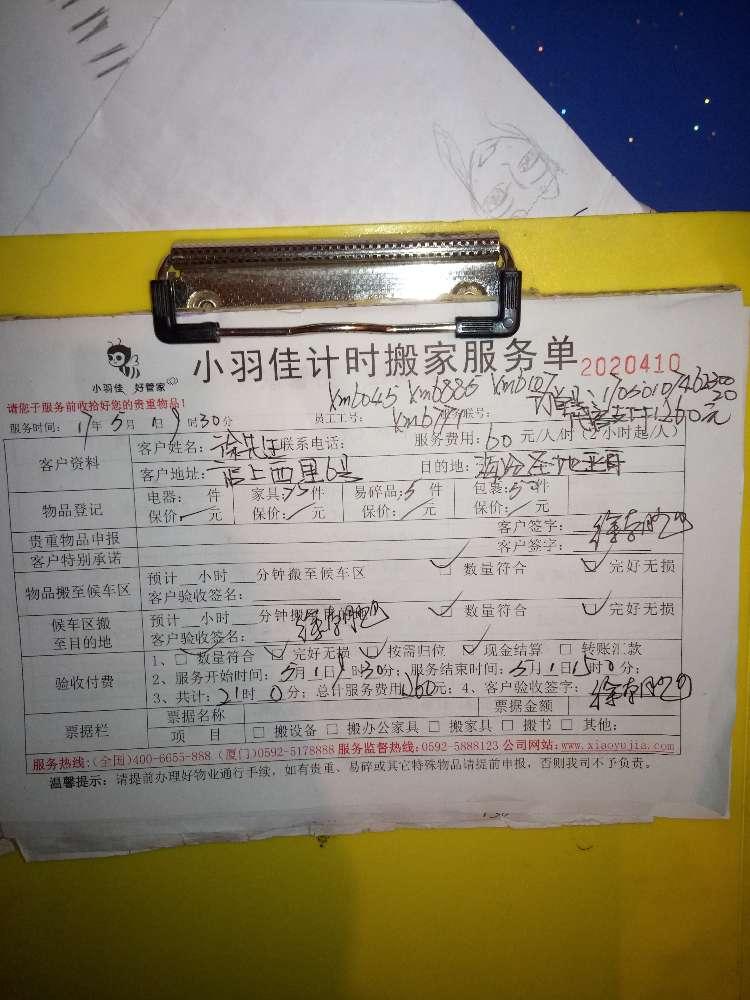 小羽佳 好管家
小羽佳计时搬家服务单 2020410
请您于服务前收拾好您的贵重物品!
xmb045 xmb886 xmb107
服务时间: 17年5月1日9时30分 员工工号: 联号:
客户资料 客户姓名: 徐先生 联系电话: 服务费用: 60 元/人/时(2小时起/人)
客户地址: 西里6号 目的地:
物品登记 电器: 件 家具: 35件 易碎品: 5件 包裹: 5件
保价: 元 保价: 元 保价: 元 保价: 元
贵重物品申报 客户签字:
客户特别承诺 客户签字:
物品搬至候车区 预计__小时__分钟搬至候车区 □ 数量符合 □ 完好无损
客户验收签名:
候车区搬至目的地 预计__小时__分钟搬 □ 数量符合 □ 完好无损
客户验收签名:
验收付费 1、□ 数量符合 □ 完好无损 □ 按需归位 □ 现金结算 □ 转账汇款
2、服务开始时间: 5月1日9时30分; 服务结束时间: 5月1日15时0分;
3、共计: 21时0分; 总计服务费用1260元; 4、客户验收签字:
票据栏 票据名称 票据金额
项 目 □ 搬设备 □ 搬办公家具 □ 搬家具 □ 搬书 □ 其他:
服务热线:(全国)400-6655-888 (厦门)0592-5178888 服务监督热线:0592-5888123 公司网站:www.xiaoyujia.com
温馨提示: 请提前办理好物业通行手续, 如有贵重、易碎或其它特殊物品请提前申报, 否则我司不予负责。